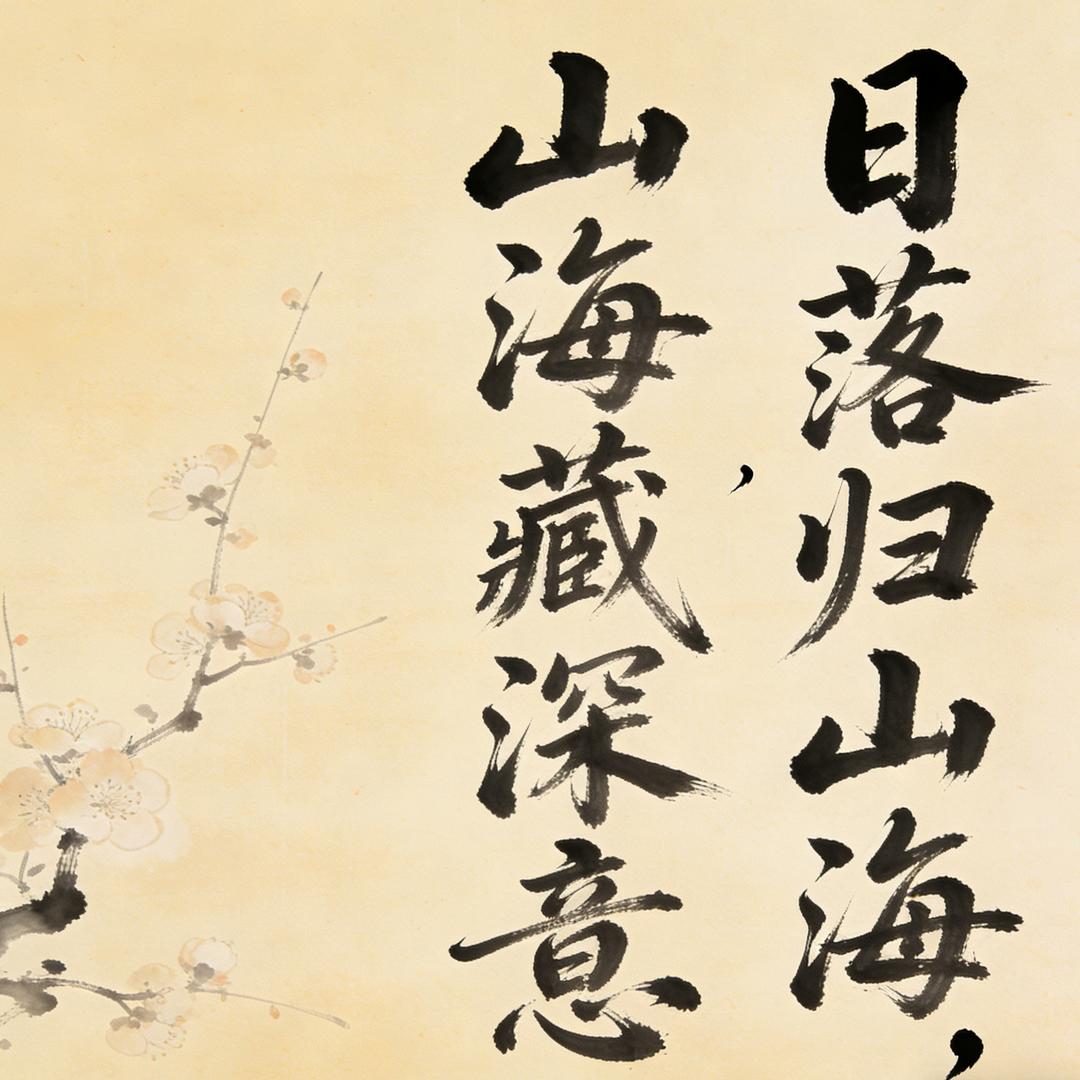 日落归山海，
山海藏深意